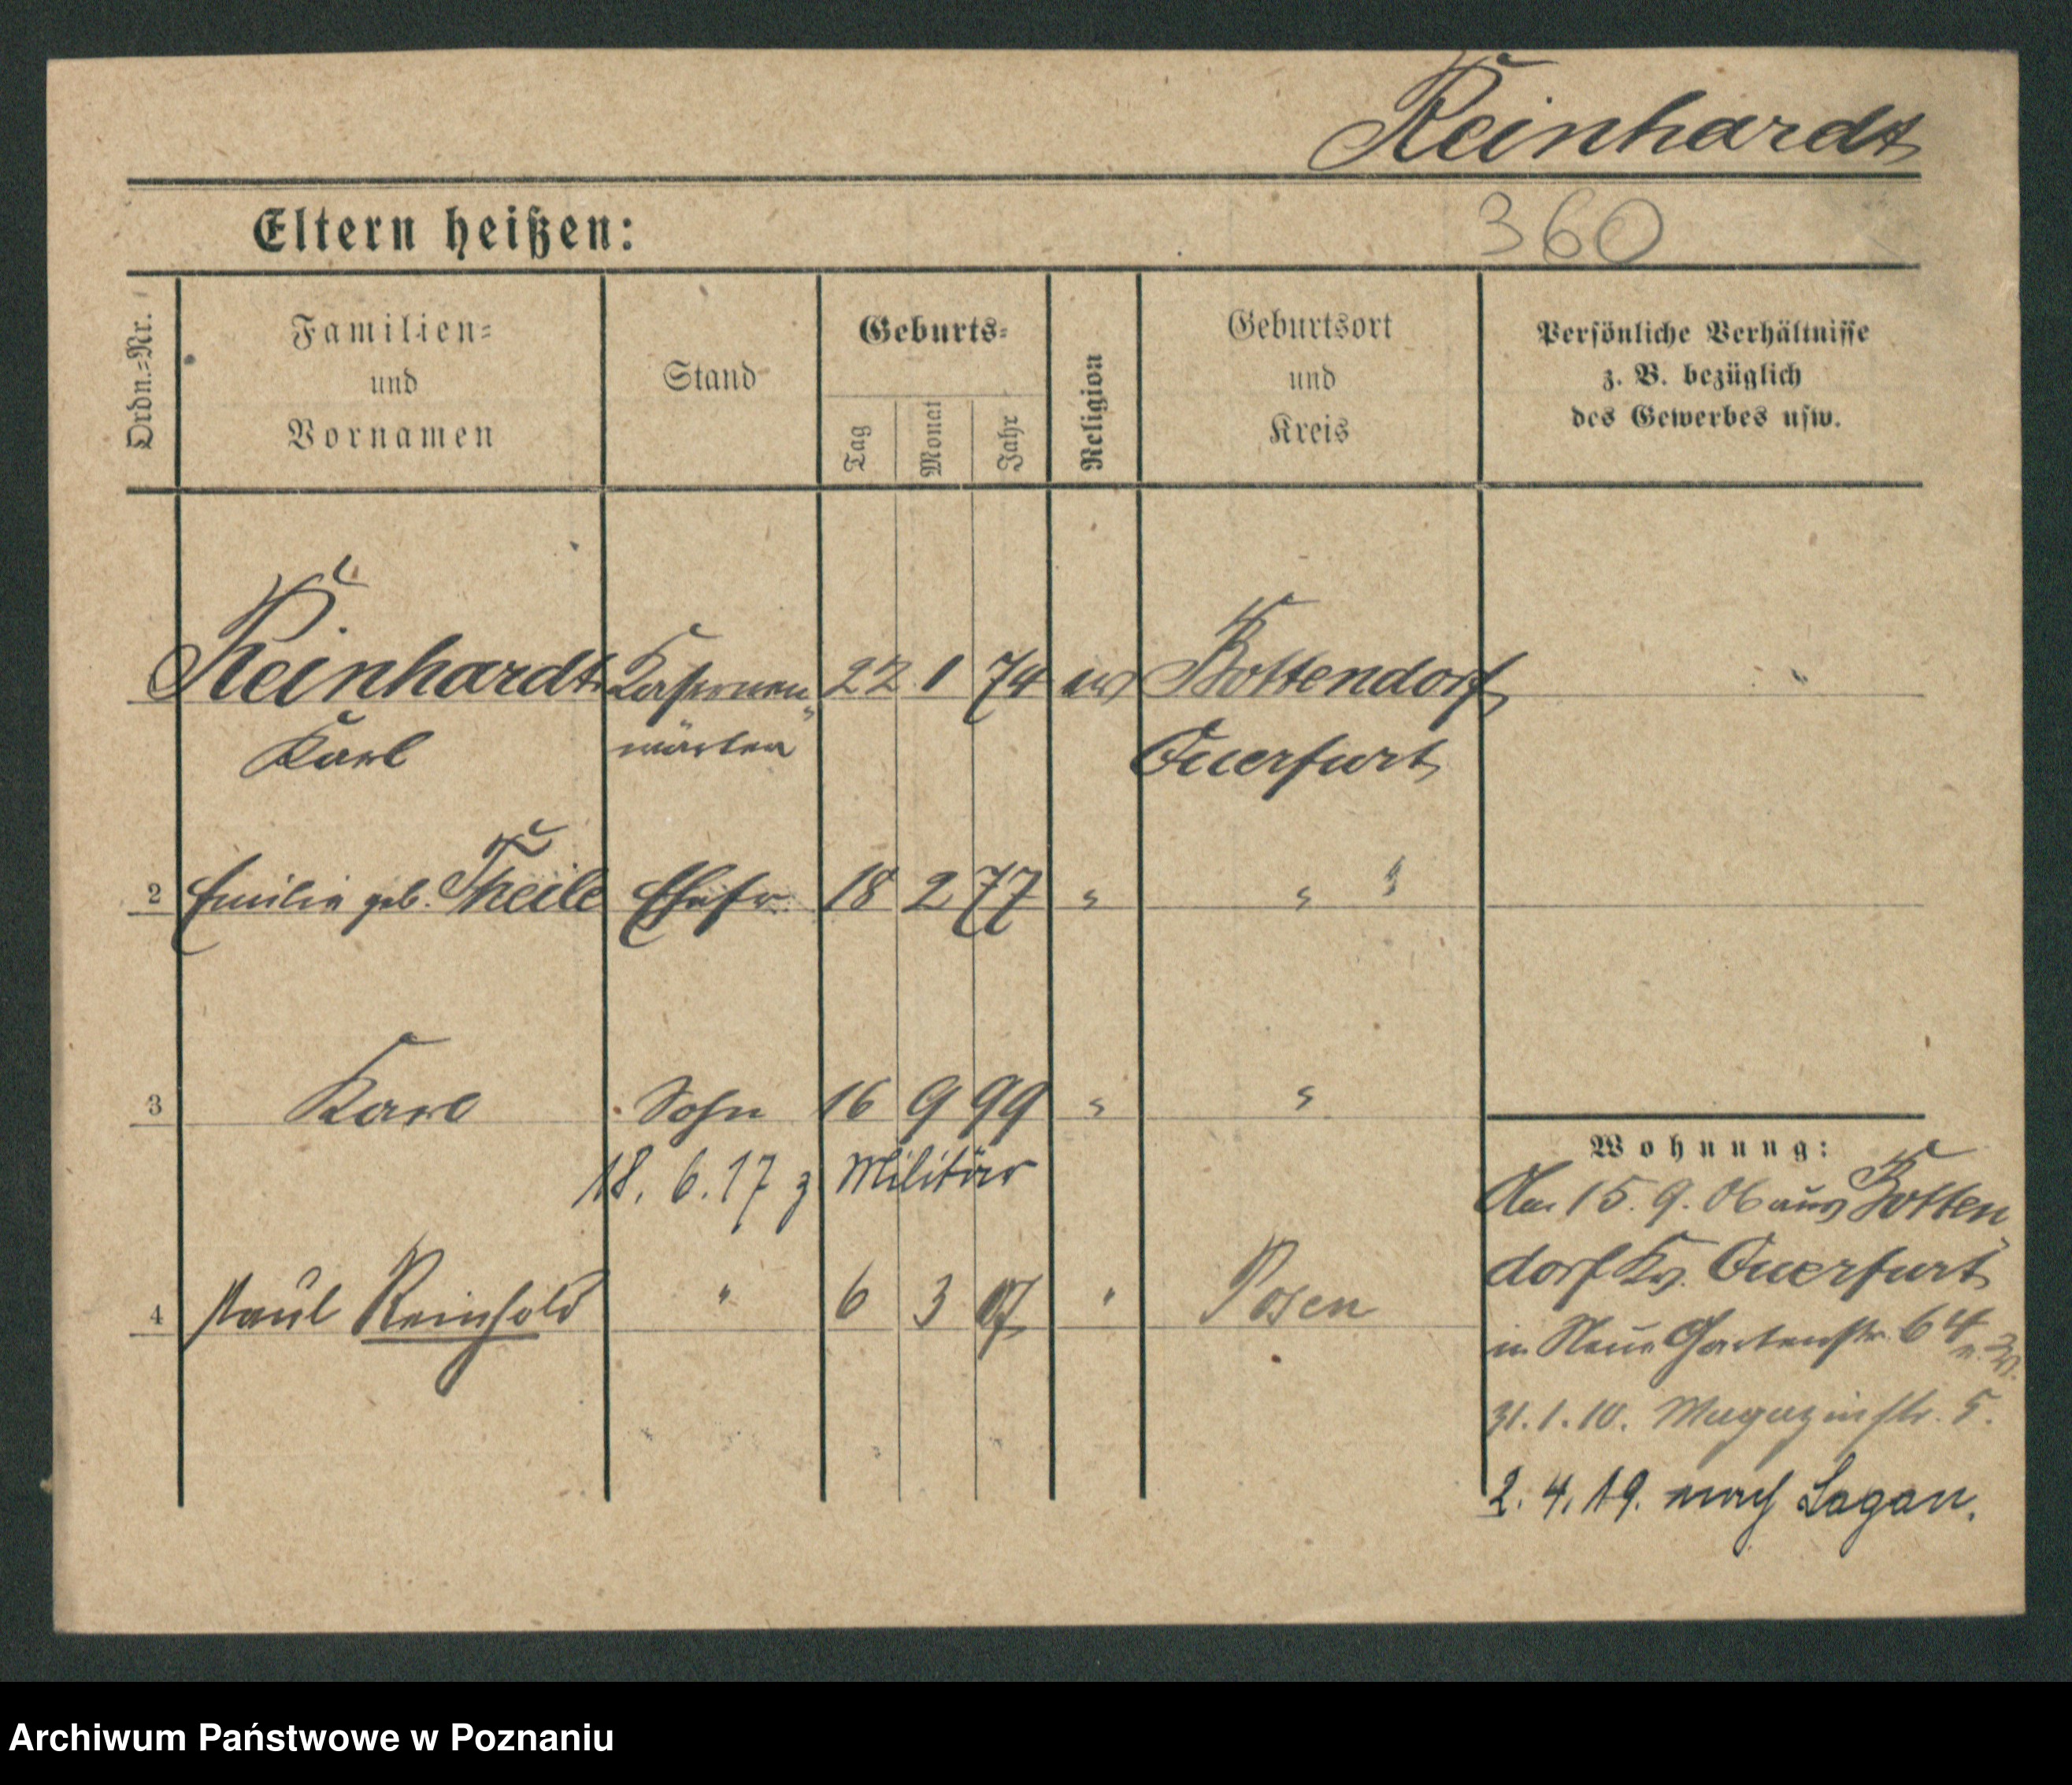 Reinhardt
Eltern heißen:
360
Ordn.-Nr.
Familien-
und
Vornamen
Stand
Geburts-
Tag
Monat
Jahr
Religion
Geburtsort
und
Kreis
Persönliche Verhältnisse
z. B. bezüglich
des Gewerbes usw.
Reinhardt Kasernen 22 1 74 ev Bottendorf
Karl wärter Querfurt
2 Emilie geb. Theile Ehefr. 18 2 77 " " "
3 Karl Sohn 16 9 99 " "
18. 6. 17 z Militär
4 Paul Reinhold " 6 3 07 " Posen
Wohnung:
Am 15. 9. 06 aus Botten
dorf Kr. Querfurt
in Neue Gartenstr. 64
31. 1. 10. Magazinstr. 5.
2. 4. 19. nach Sagan.
Archiwum Państwowe w Poznaniu